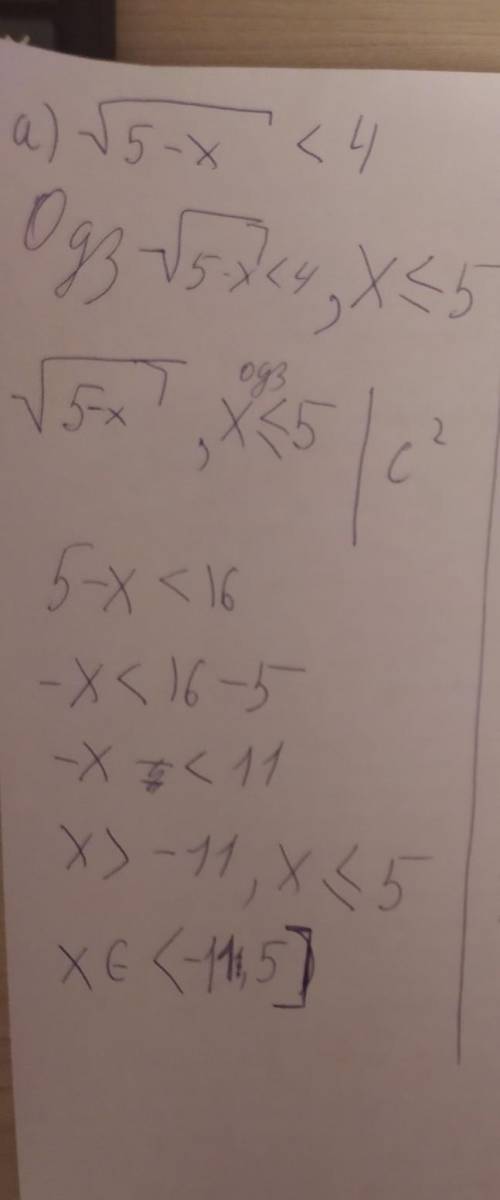 а) √5-x < 4
Одз √5-x < 4, x ≤ 5
одз
√5-x, x ≤ 5 | c²
5-x < 16
-x < 16-5
-x < 11
x > -11, x ≤ 5
x ∈ <-11, 5]